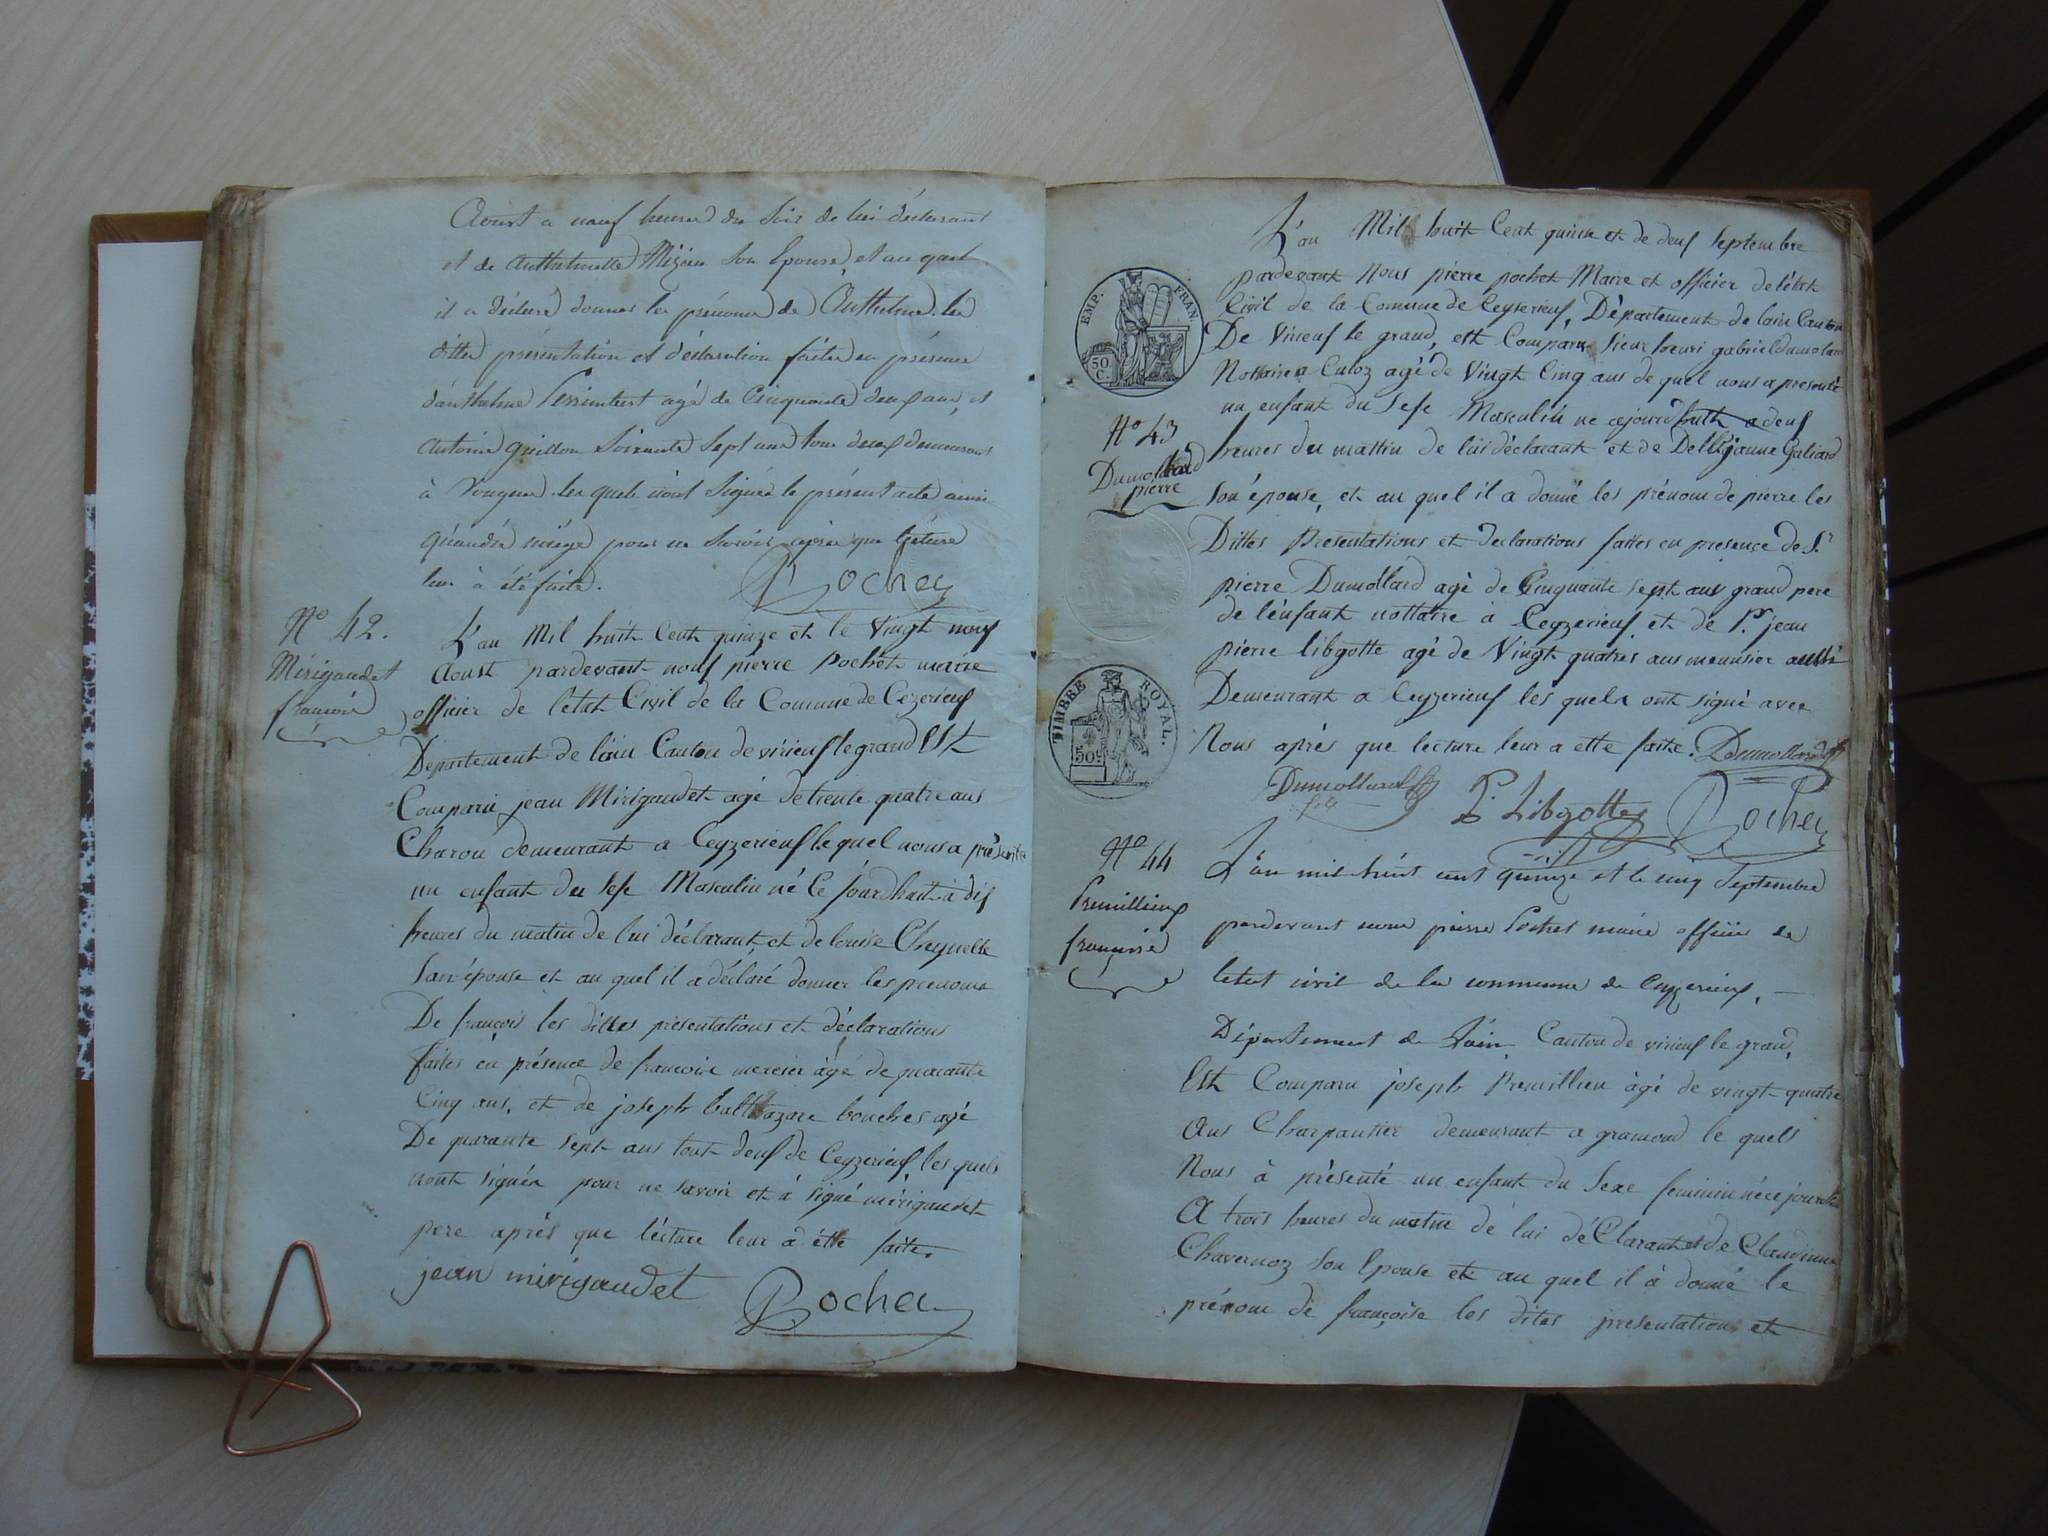 Aoust a neuf heures du Soir de lui déclarant
et de Anthelmette Mizien Son Epouse, et au quel
il a déclaré donner les prénoms de Anthelme. les
dittes présentation et déclaration faites en présence
d'anthelme Perrimbert agé de Cinquante deux ans, et
antoine guillon Soixante Sept ans tous deux demeurant
à Vongnes les quels n'ont Signés le présent acte ainsi
pour ne Savoir après que lecture
leur à été faite. Pochet
N° 42.
Mérigaudet
françois
L'an Mil huit Cent quinze et le Vingt neuf
Aoust pardevant nous pierre Pochet maire
officier de l'etat Civil de la Commune de Cézerieux
Département de l'ain Canton de virieux le grand Est
Comparu jean Mérigaudet agé de trente quatre ans
Charon demeurant a Ceyzerieux le quel nous a présenté
un enfant du Sexe Masculin né Ce jourdhuit à dix
heures du matin de lui déclarant, et de louise
Son épouse et au quel il a déclaré donner les prenoms
De françois les dittes présentations et déclarations
faites en présence de francois mercier âgé de quarante
Cinq ans, et de joseph baltazare bouchet agé
De quarante sept ans tout deux de Ceyzerieux les quels
nont signés pour ne savoir et à signé mérigaudet
pere après que lécture leur à étte faite.
jean mirigaudet Pochet
EMP. FRAN.
50 C.
N° 43
Dumollard
pierre
TIMBRE ROYAL.
50c
L'an Mil huit Cent quinse et de deux Septembre
pardevant Nous pierre pochet Maire et officier de l'état
Civil de la Commune de Ceyserieux, Département de lain Canton
De Virieux le grand, est Comparu Sieur henri gabriel dumolard
Nottaire a Culoz agé de Vingt Cinq ans de quel nous a presenté
un enfant du Sexe Masculin ne aojourdhuit a deux
heures du mattin de lui déclarant et de Delle jeanne Galiard
Son épouse, et au quel il a donné les prénom de pierre les
Dittes Presentations et declarations faites en presence de Sr
pierre Dumollard agé de Cinquante sept ans grand pere
de l'énfant nottaire à Ceyzerieux et de Sr. jean
pierre libgotte agé de Vingt quatres ans meunisier aussi
Demeurant a Ceyzerieux les quels ont signé avec
Nous après que lecture leur a ette faite. Dumollard
Dumollard P. Libgotte Pochet
N° 44
Premillieux
françoise
L'an mil huit cent quinze et le cinq Septembre
pardevant nous pierre Pochet maire officier de
letat civil de la commune de Ceyzerieux, —
Département de Lain Canton de virieux le grand,
Est Comparu joseph Premillieu àgé de vingt quatre
Ans Charpantier demeurant a gramond le quels
Nous à présenté un enfant du Sexe feminin né ce jourdhui
A trois heures du matin de lui déClarant et de Claudine
Chavernoz Son Epouse et au quel il à donné le
prénom de françoise les dites presentations et